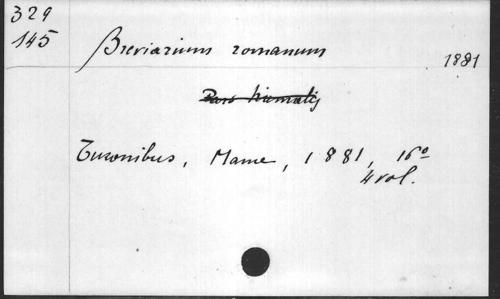 329
145
Breviarium romanum
1881
Pars hiemalis
Turonibus, Mame, 1881, 16º
4 vol.